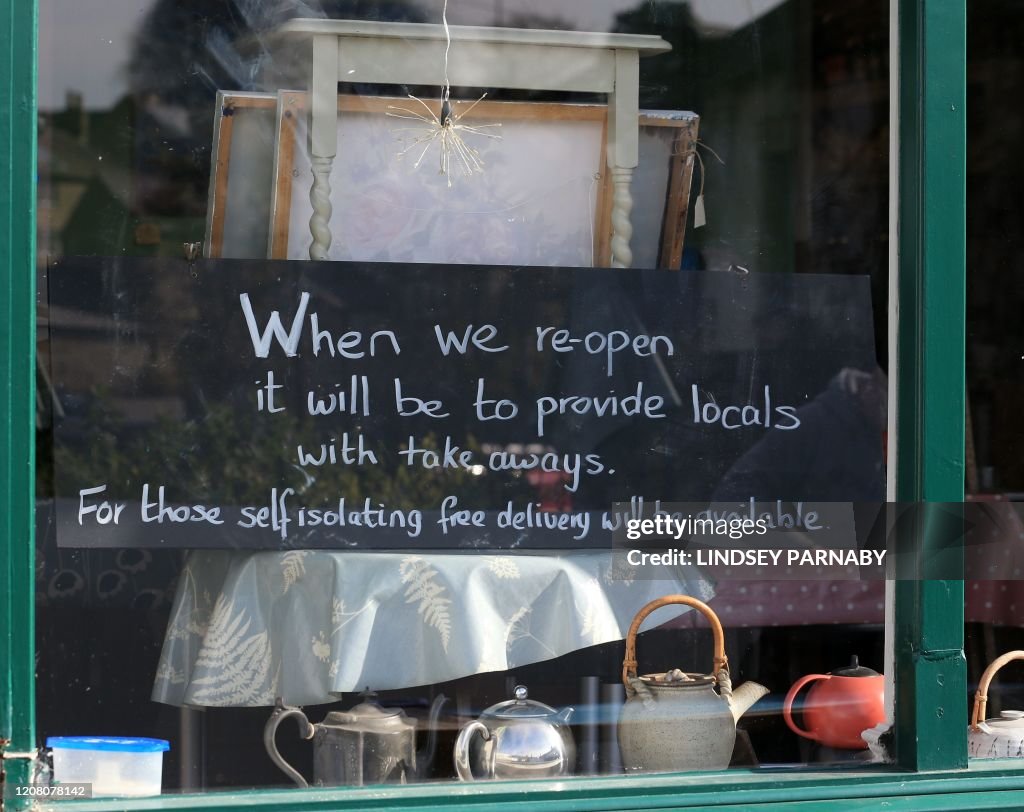 When we re-open
it will be to provide locals
with take aways.
For those self isolating free delivery will be available
gettyimages
Credit: LINDSEY PARNABY
1208078142